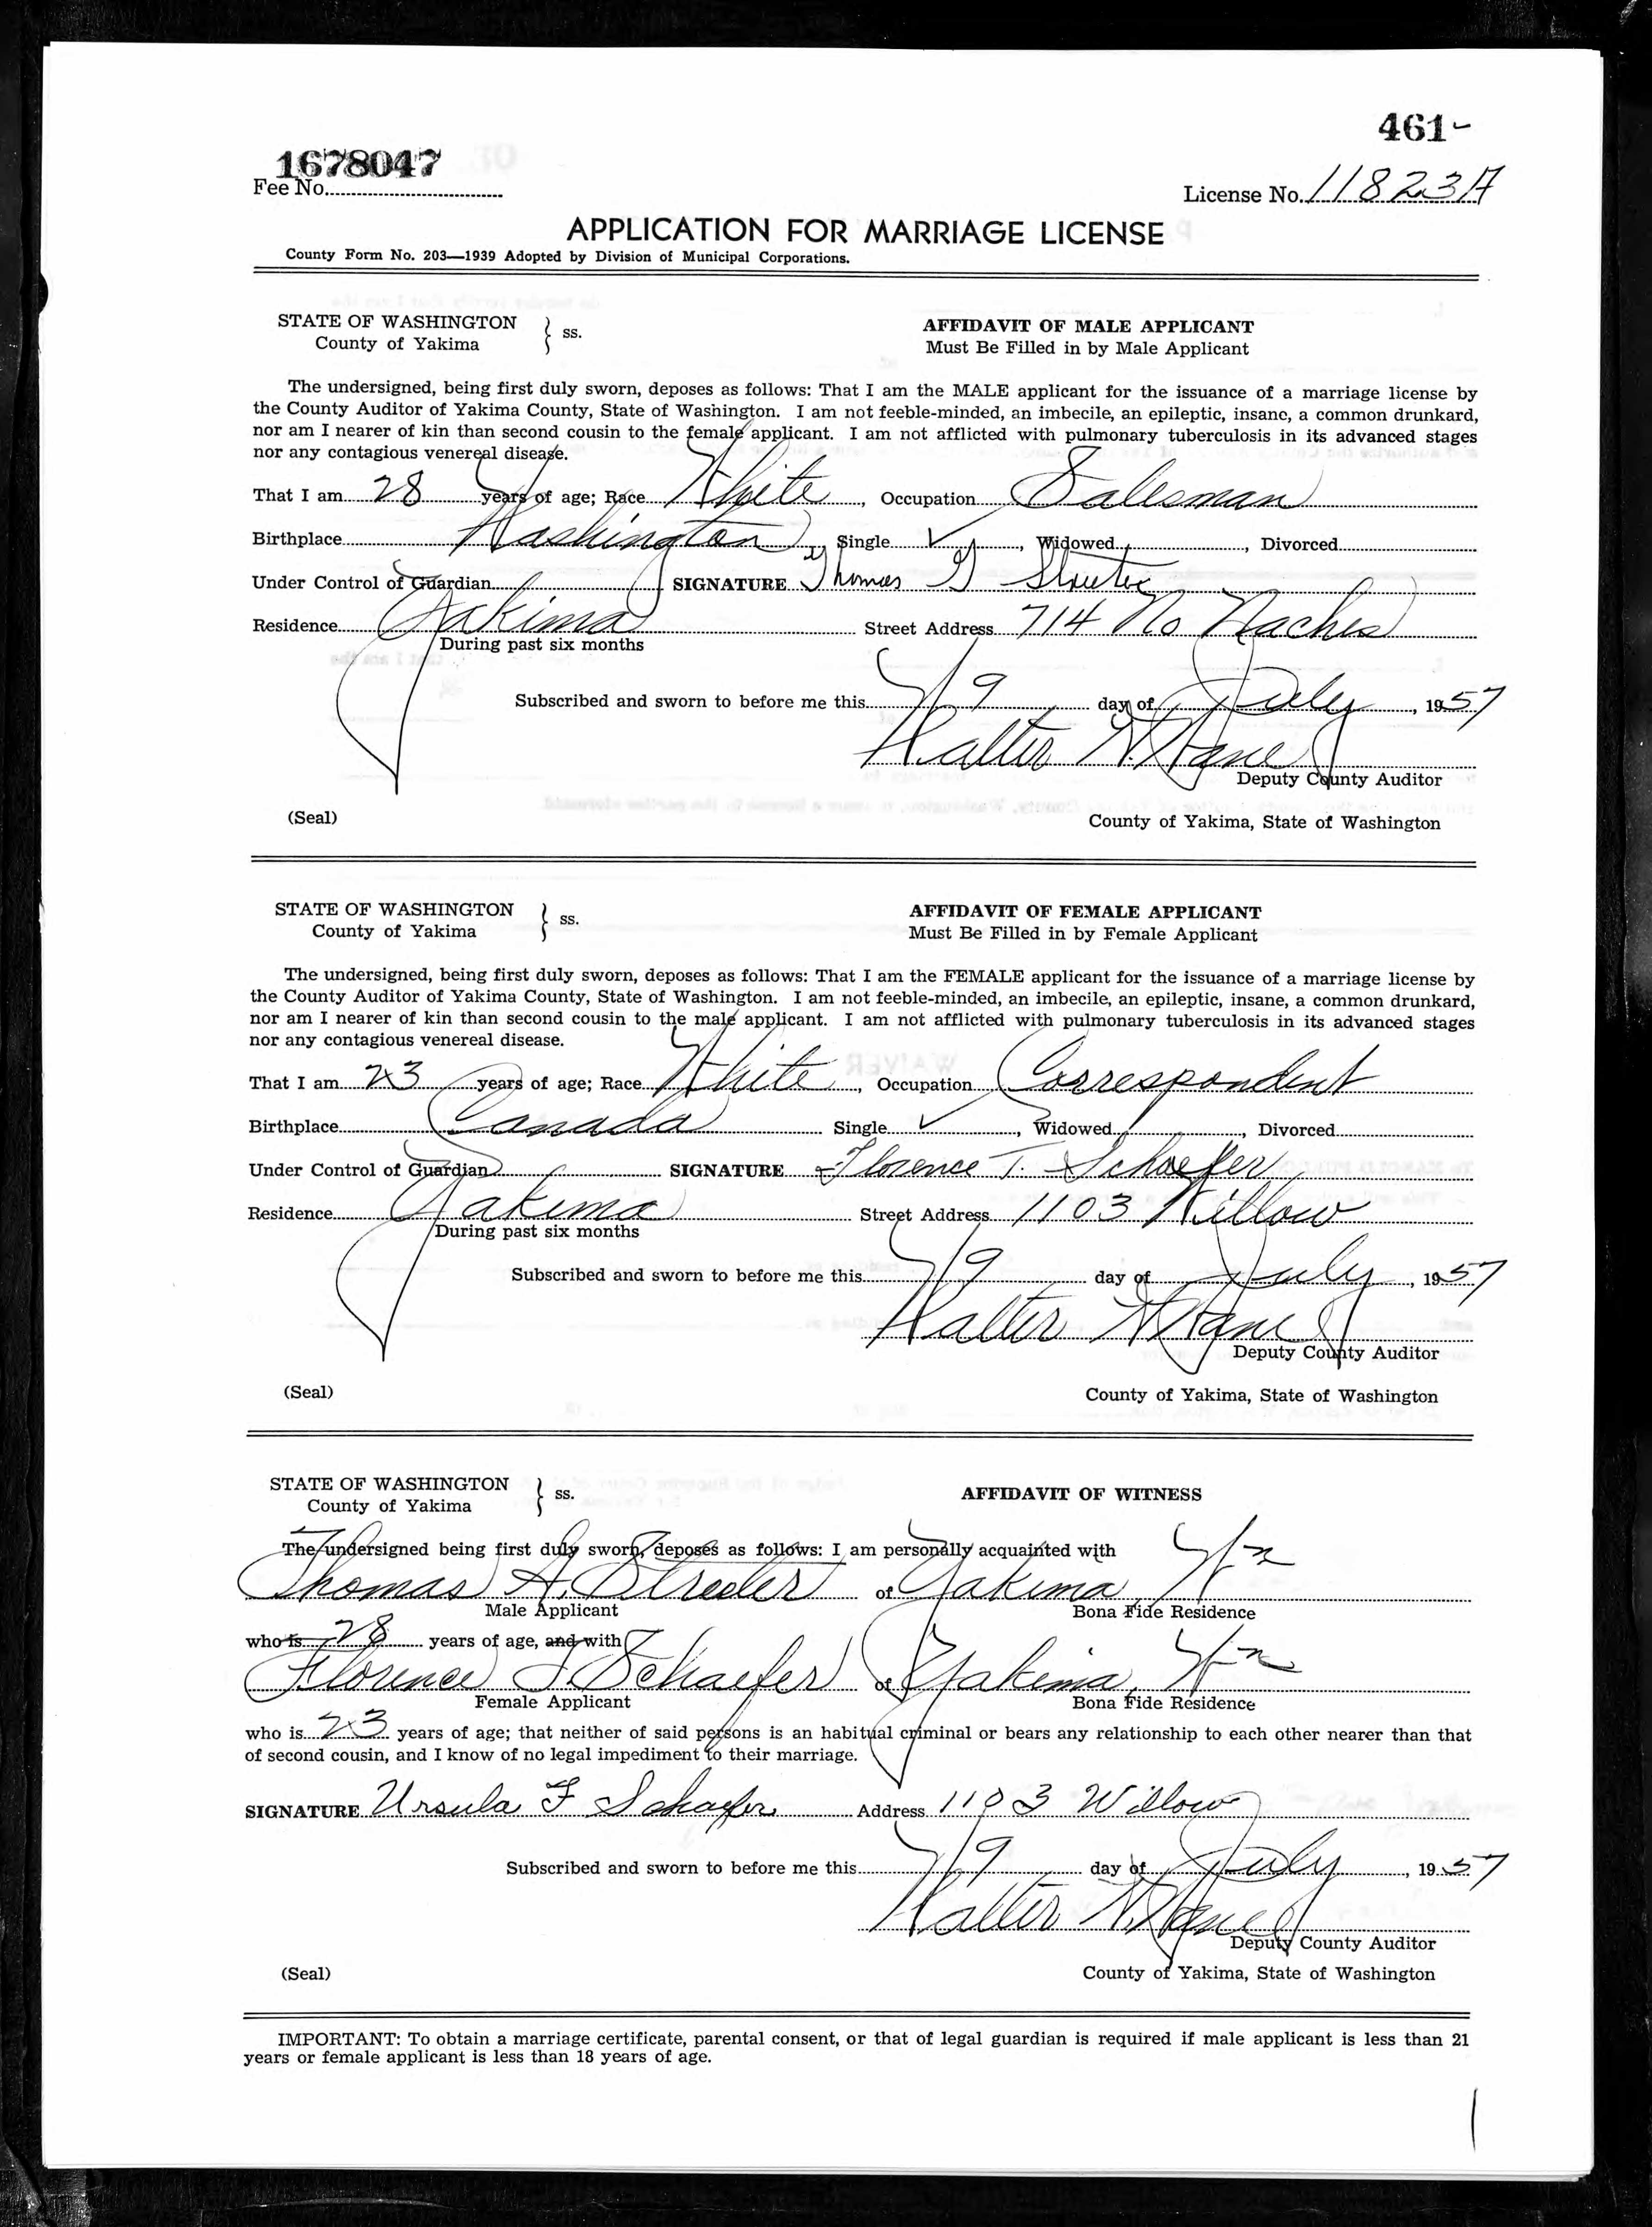 461-
1678047
Fee No.
License No. 11823A
APPLICATION FOR MARRIAGE LICENSE
County Form No. 203—1939 Adopted by Division of Municipal Corporations.
STATE OF WASHINGTON
County of Yakima
} ss.
AFFIDAVIT OF MALE APPLICANT
Must Be Filled in by Male Applicant
The undersigned, being first duly sworn, deposes as follows: That I am the MALE applicant for the issuance of a marriage license by
the County Auditor of Yakima County, State of Washington. I am not feeble-minded, an imbecile, an epileptic, insane, a common drunkard,
nor am I nearer of kin than second cousin to the female applicant. I am not afflicted with pulmonary tuberculosis in its advanced stages
nor any contagious venereal disease.
That I am 28 years of age; Race White, Occupation Salesman
Birthplace Washington, Single ✓, Widowed, Divorced
Under Control of Guardian SIGNATURE Thomas
Residence Yakima Street Address 714 No Naches
During past six months
Subscribed and sworn to before me this 9 day of July, 1957
Walter
Deputy County Auditor
(Seal) County of Yakima, State of Washington
STATE OF WASHINGTON
County of Yakima
} ss.
AFFIDAVIT OF FEMALE APPLICANT
Must Be Filled in by Female Applicant
The undersigned, being first duly sworn, deposes as follows: That I am the FEMALE applicant for the issuance of a marriage license by
the County Auditor of Yakima County, State of Washington. I am not feeble-minded, an imbecile, an epileptic, insane, a common drunkard,
nor am I nearer of kin than second cousin to the male applicant. I am not afflicted with pulmonary tuberculosis in its advanced stages
nor any contagious venereal disease.
That I am 23 years of age; Race White, Occupation Correspondent
Birthplace Canada Single ✓, Widowed, Divorced
Under Control of Guardian SIGNATURE Florence T. Schaefer
Residence Yakima Street Address 1103 Willow
During past six months
Subscribed and sworn to before me this 9 day of July, 1957
Walter
Deputy County Auditor
(Seal) County of Yakima, State of Washington
STATE OF WASHINGTON
County of Yakima
} ss.
AFFIDAVIT OF WITNESS
The undersigned being first duly sworn, deposes as follows: I am personally acquainted with
Thomas of Yakima, Wn
Male Applicant Bona Fide Residence
who is 28 years of age, and with
Florence T. Schaefer of Yakima, Wn
Female Applicant Bona Fide Residence
who is 23 years of age; that neither of said persons is an habitual criminal or bears any relationship to each other nearer than that
of second cousin, and I know of no legal impediment to their marriage.
SIGNATURE Ursula F Schaefer Address 1103 Willow
Subscribed and sworn to before me this 9 day of July, 1957
Walter
Deputy County Auditor
(Seal) County of Yakima, State of Washington
IMPORTANT: To obtain a marriage certificate, parental consent, or that of legal guardian is required if male applicant is less than 21
years or female applicant is less than 18 years of age.